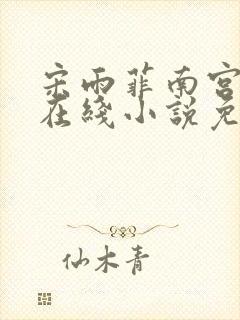 宋雨菲南宫
在綫小説免
仙木青